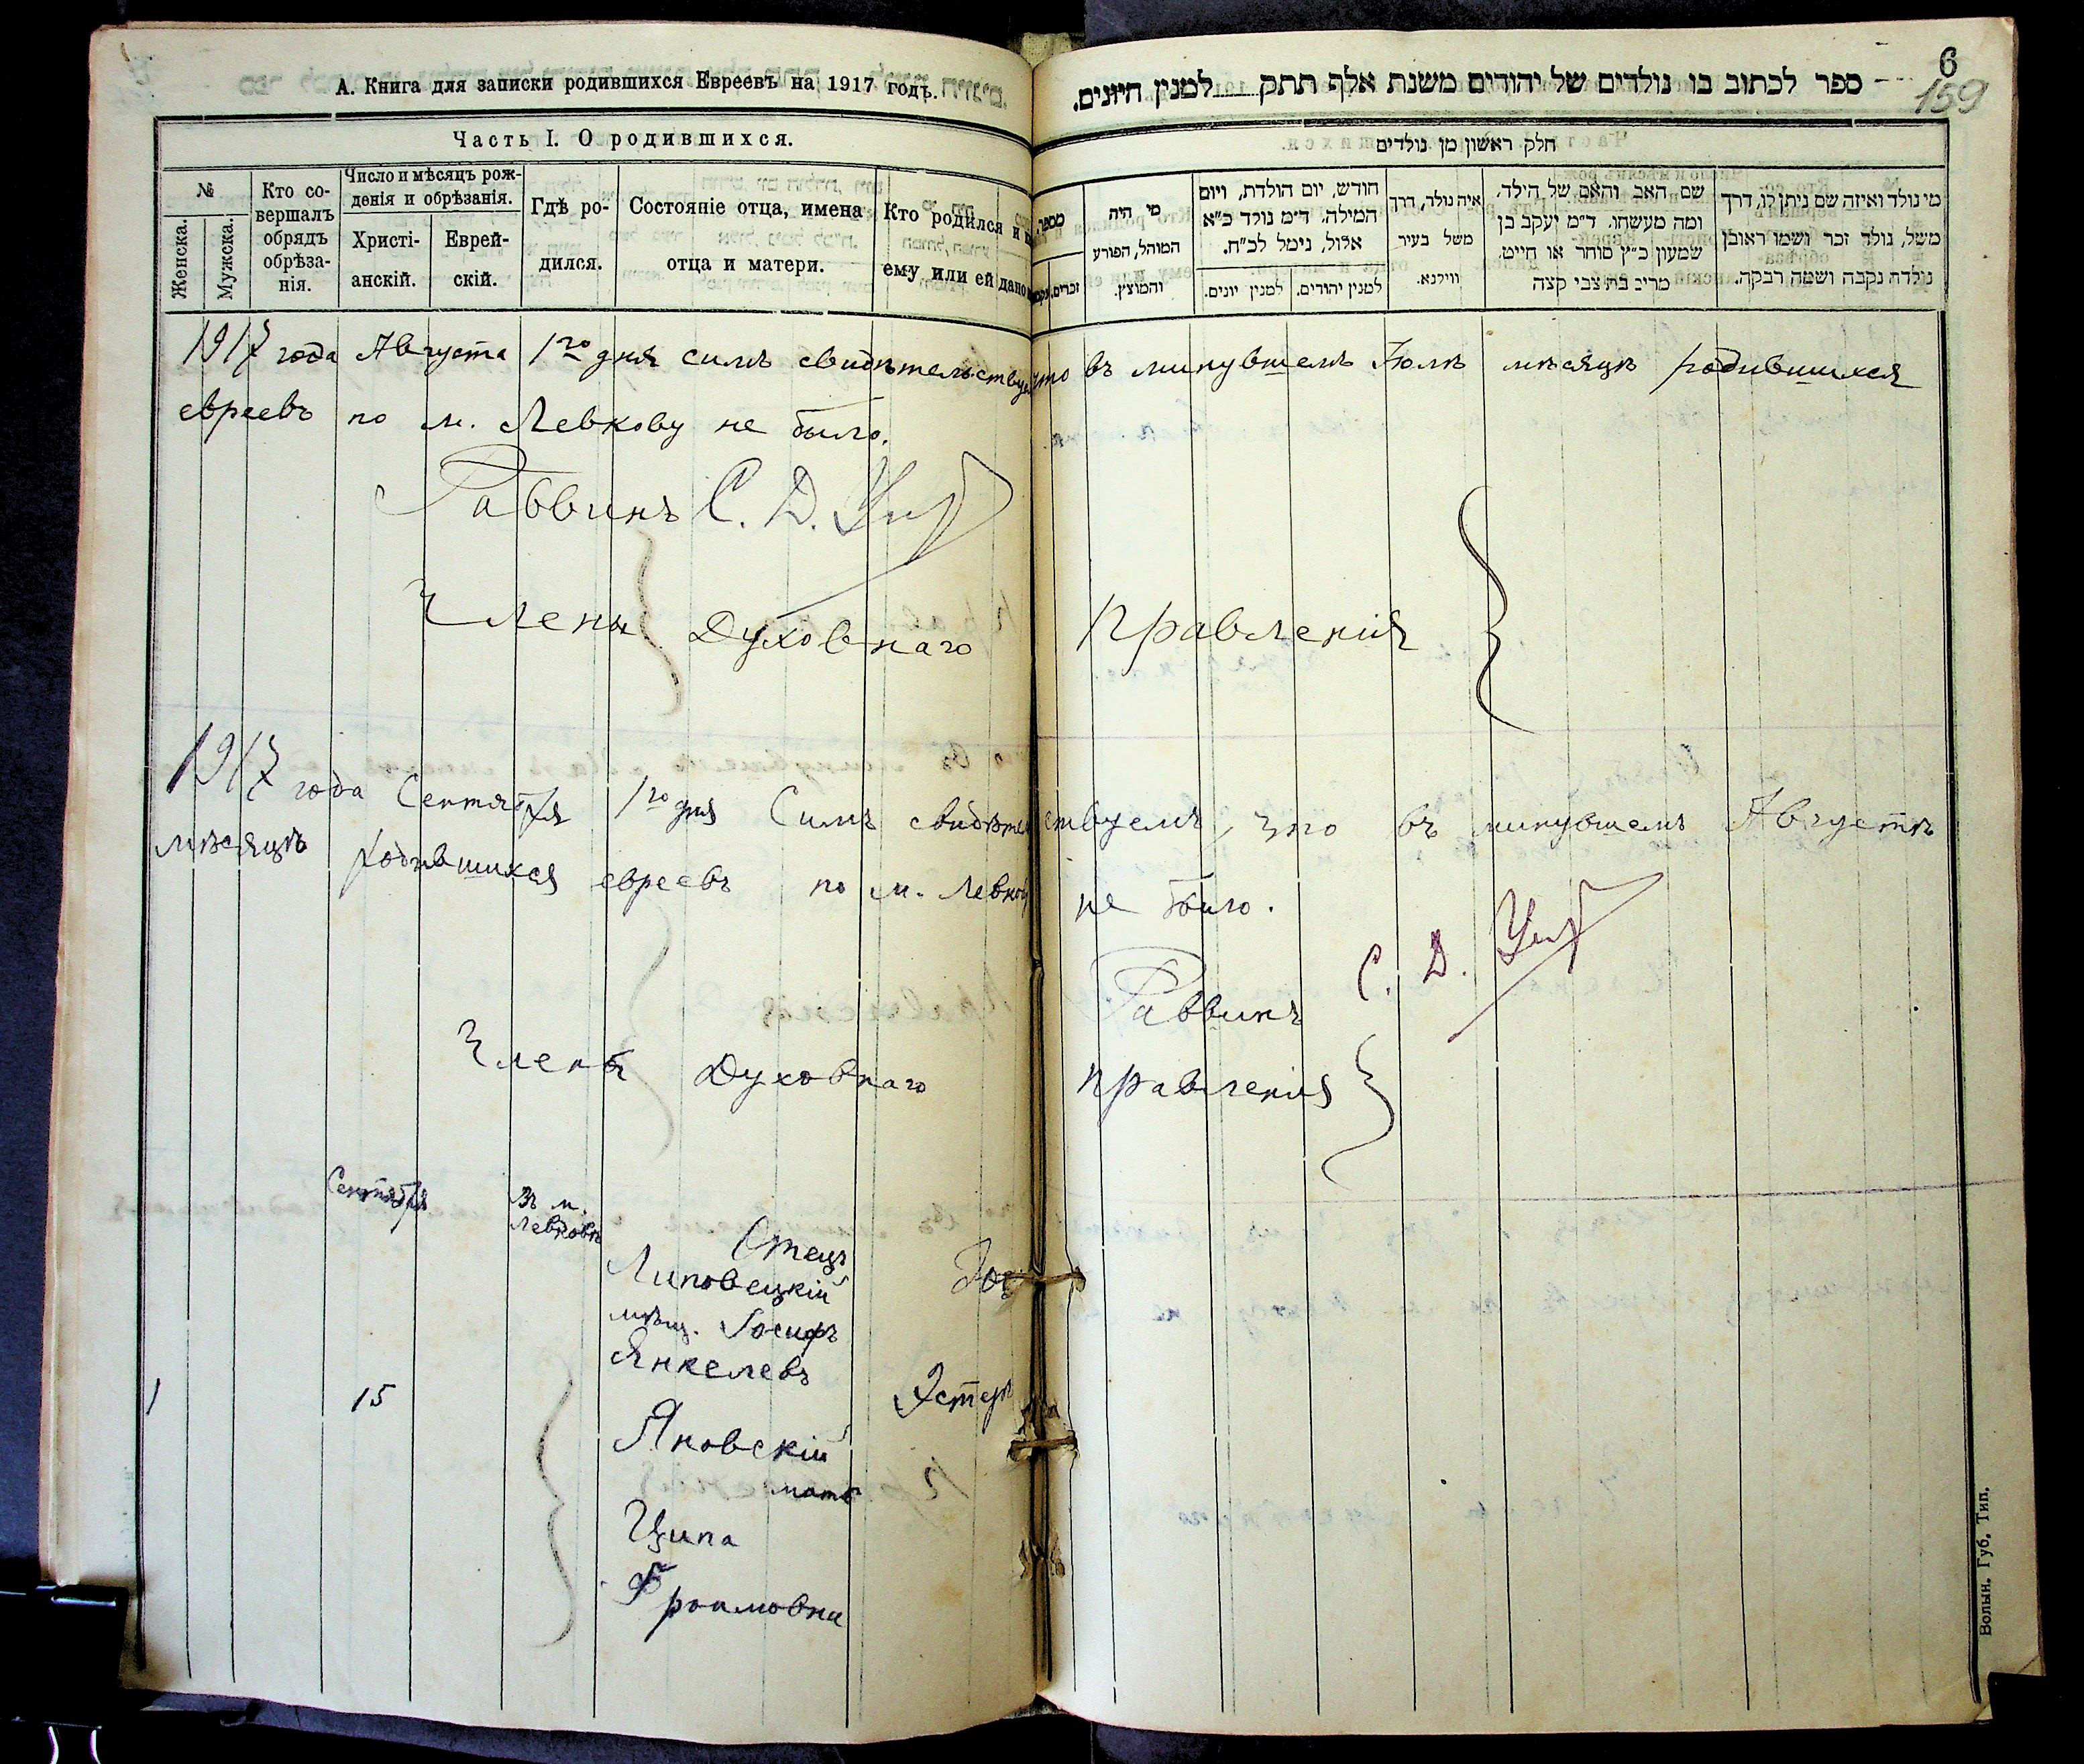 А. Книга для записки родившихся Евреевъ на 1917 годъ.
Часть I. О родившихся.
№
Женска.
Мужска.
Кто со-
вершалъ
обрядъ
обрѣза-
нія.
Число и мѣсяцъ рож-
денія и обрѣзанія.
Христі-
анскій.
Еврей-
скій.
Гдѣ ро-
дился.
Состояніе отца, имена
отца и матери.
Кто родился и
ему или ей дано
6
159
ספר לכתוב בו נולדים של יהודים משנת אלף תתק למנין היונים.
חלק ראשון מן נולדים
מספר
זכרים.
מי היה
המוהל, הפורע
והמוצץ.
חודש, יום הולדת, ויום
המילה. ד״מ נולד כ״א
אלול, נימל לכ״ח.
למנין יונים.
למנין יהודים.
איה נולד, דרך
משל בעיר
ווילנא.
שם האב והאם של הילד.
ומה מעשהו. ד״מ יעקב בן
שמעון כ״ץ סוחר או חייט.
מרים בת צבי קצה
מי נולד ואיזה שם ניתן לו, דרך
משל, נולד זכר ושמו ראובן
נולדת נקבה ושמה רבקה.
1917 года Августа 1го дня симъ свидѣтельствуемъ что въ минувшемъ Іюлѣ мѣсяцѣ родившихся
евреевъ по м. Левкову не было.
Раввинъ С. Д.
Члены Духовнаго Правленія
1917 года Сентября 1го дня Симъ свидѣтельствуемъ, что въ минувшемъ Августѣ
мѣсяцѣ родившихся евреевъ по м. Левкову не было.
Раввинъ С. Д.
Члены Духовнаго Правленія
Сентября
Въ м.
Левковѣ
Отецъ
Липовецкій
мѣщ. Іосифъ
Янкелевъ
1 15 Эстеръ
Яновскій
мать
Ципа
Фроимовна
Волын. Губ. Тип.